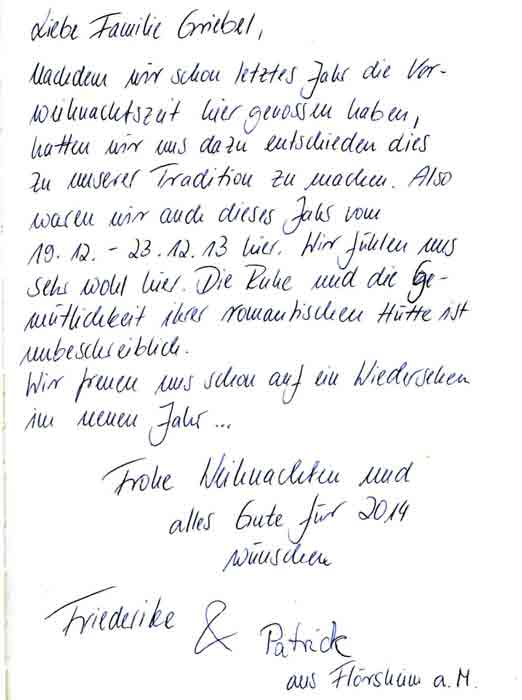 Liebe Familie Griebel,
Nachdem wir schon letztes Jahr die Vor-
weihnachtszeit hier genossen haben,
hatten wir uns dazu entschieden dies
zu unserer Tradition zu machen. Also
waren wir auch dieses Jahr vom
19.12. - 23.12.13 hier. Wir fühlen uns
sehr wohl hier. Die Ruhe und die Ge-
mütlichkeit ihrer romantischen Hütte ist
unbeschreiblich.
Wir freuen uns schon auf ein Wiedersehen
im neuen Jahr...
Frohe Weihnachten und
alles Gute für 2014
wünschen
Friederike & Patrick
aus Flörsheim a.M.